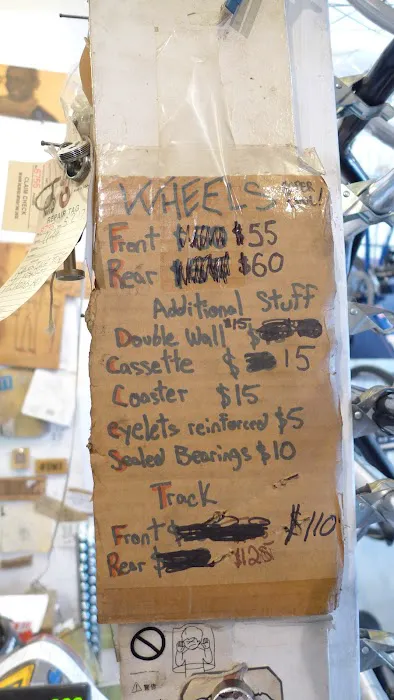 WHEELS
Front $55
Rear $60
Additional Stuff
Double Wall $15 $
Cassette $ 15
Coaster $15
eyelets reinforced $5
Sealed Bearings $10
Track
Front $ $110
Rear $ $125
CLAIM CHECK
REPAIR TAG